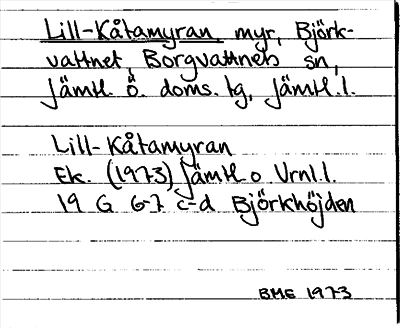 Lill-Kåtamyran, myr, Björk-
vattnet, Borgvattnets sn,
Jämtl. ö. doms. tg, Jämtl. l.
Lill-Kåtamyran
Ek. (1973) Jämtl o. Vrnl. l.
19 G 6-7 c-d Björkhöjden
BME 1973